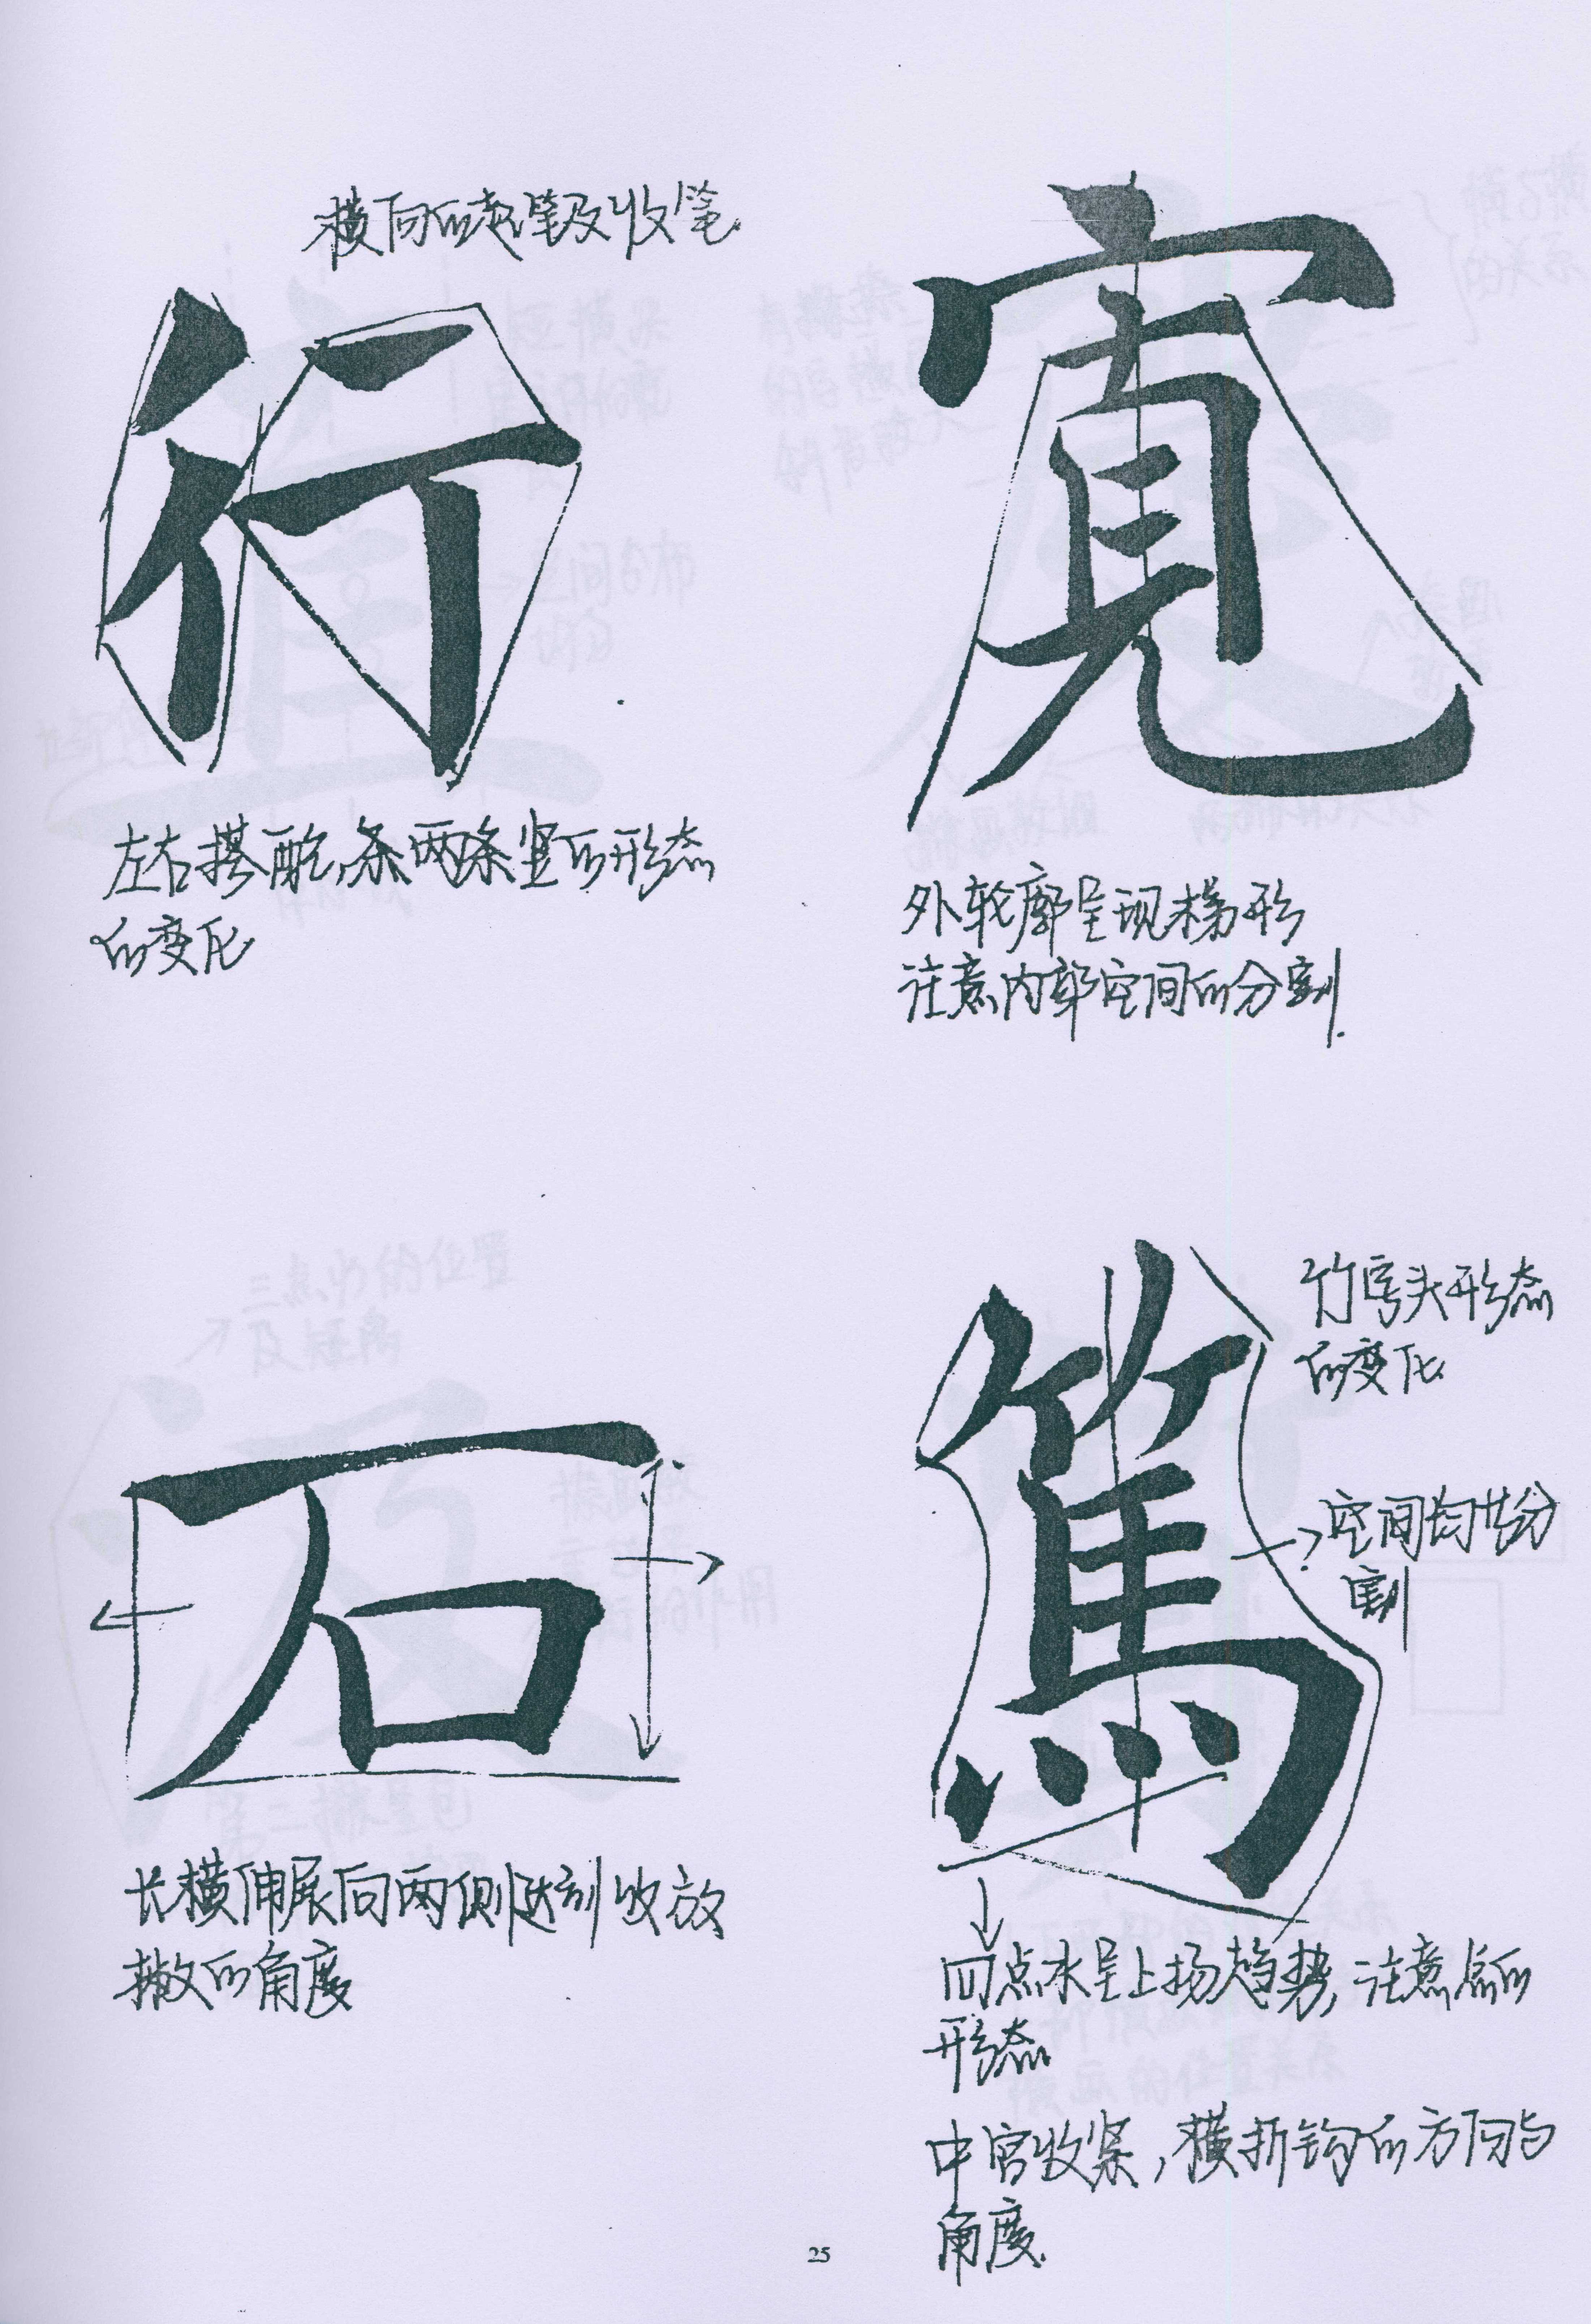 横向的起笔及收笔
行
左右搭配,条两条竖的形态
的变化
寬
外轮廓呈现梯形
注意内部空间的分割.
石
长横伸展向两侧达到收放
撇的角度
篤
竹字头形态
的变化
空间均匀分
割
四点水呈上扬趋势,注意点的
形态
中宫收紧,横折钩的方向与
角度.
25